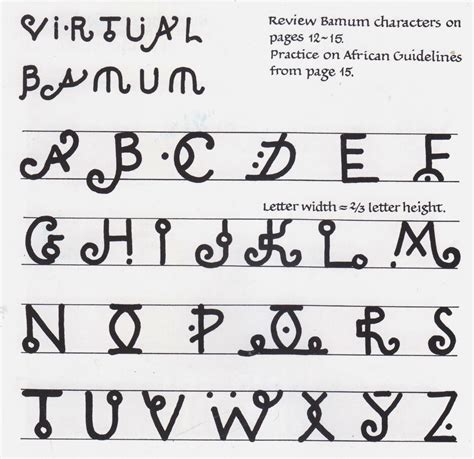 VIRTUAL
BAMUM
Review Bamum characters on
pages 12-15.
Practice on African Guidelines
from page 15.
A B C D E F
Letter width = 2/3 letter height.
G H I J K L M
N O P Q R S
T U V W X Y Z